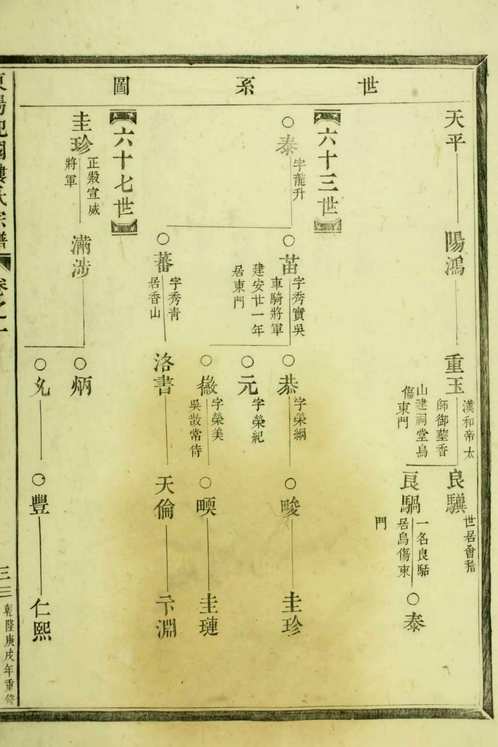 世系圖
天平
陽鴻
重玉
漢和帝太
師御墓香
山建祠堂烏
傷東門
良驥
世居會稽
良騧
一名良駘
居烏傷東
門
泰
六十三世
泰
字龍升
苗
字秀實吳
車騎將軍
建安廿一年
居東門
恭
字榮綱
畯
圭珍
元
字榮紀
字榮美
吳散常侍
圭璉
蕃
字秀青
居香山
洛書
天倫
淵
六十七世
圭珍
正殿宣威
將軍
滿涉
炳
豐
仁熙
三
乾隆庚戌年重脩